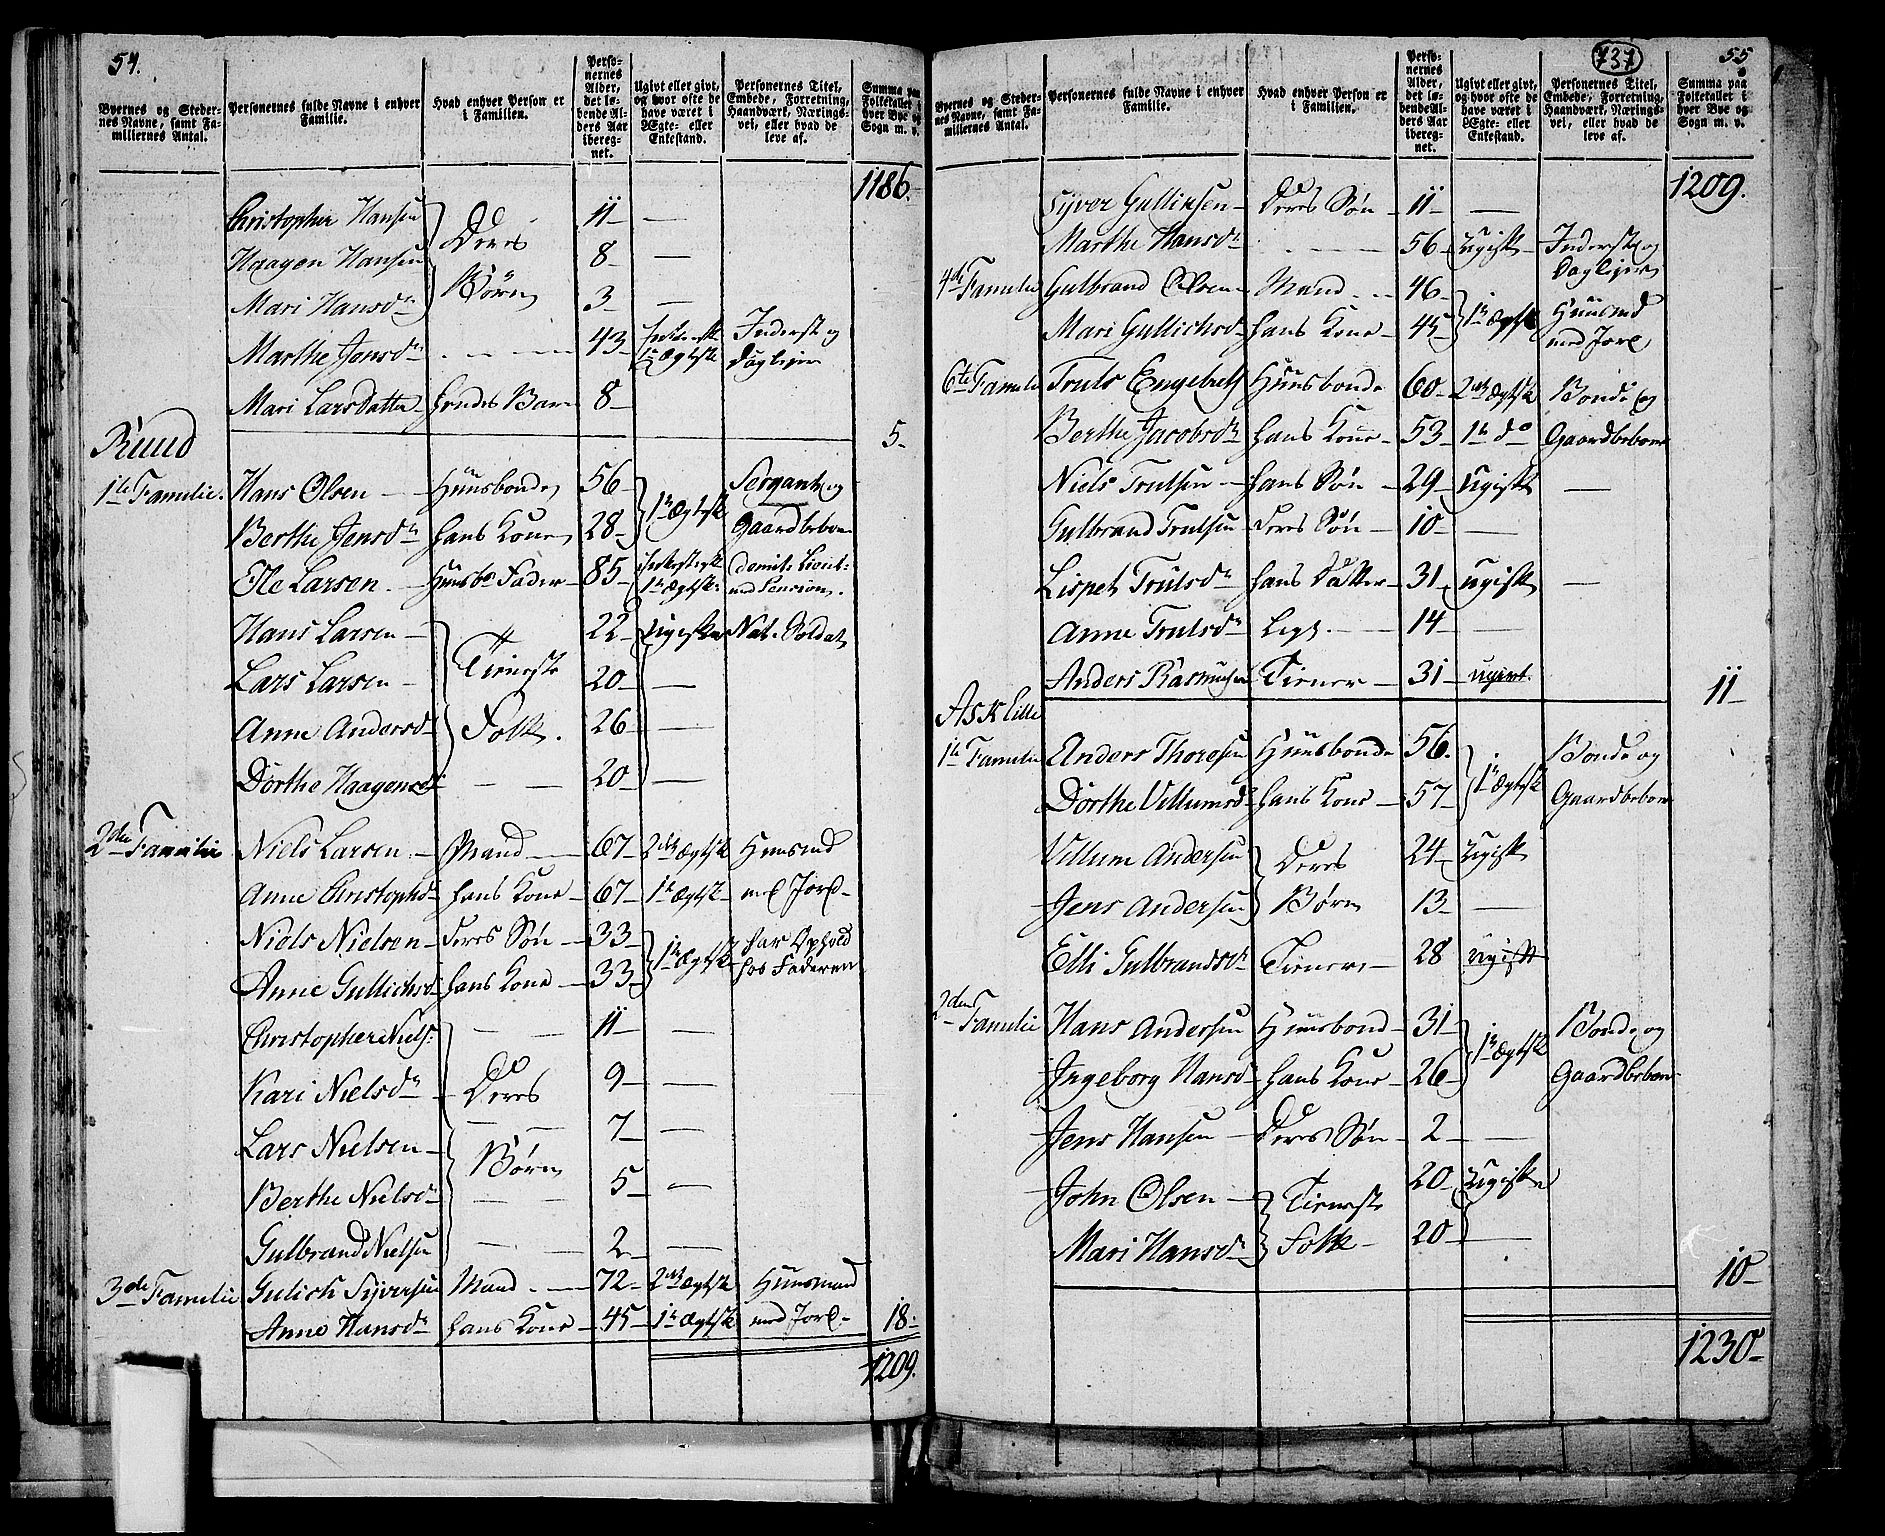 54.
Byernes og Steder-
nes Navne, samt Fa-
miliernes Antal.
Personernes fulde Navne i enhver
Familie.
Hvad enhver Person er
i Familien.
Perso-
nernes
Alder,
det lø-
bende Al-
ders Aar
ibereg-
net.
Ugivt eller givt,
og hvor ofte de
have været i
Ægte- eller
Enkestand.
Personernes Titel,
Embede, Forretning,
Haandværk, Nærings-
vei, eller hvad de
leve af.
Summa paa
Folketallet i
hver Bye og
Sogn m. v.
1186.
Christopher Hansen 11 —
Haagen Hansen Deres 8 —
Mari Hansdr Børn 3 —
Marthe Jensdr — 43 1te Ægtsk Inderst og
Daglejer
Mari Larsdatter hendes Barn 8
5
Ruud
1te Familie. Hans Olsen Huusbonde 56 1te Ægtsk Sergant og
Berthe Jensdr hans Kone 28 Gaardbeboer
Ole Larsen Huusbs Fader 85 1te Ægtsk
med Pension.
Hans Larsen 22 Ugifte Nat. Soldat
Lars Larsen Tieneste 20 —
Anne Andersdr Folk. 26 —
Dorthe Haagensdr — 20 —
2den Familie Niels Larsen Mand 67 2det Ægtsk Huusmd
Anne Christophdr hans Kone 67 1te Ægtsk med Jord
Niels Nielsen deres Søn 33 1te Ægtsk har Ophold
Anne Gullichsdr hans Kone 33 hos Faderen
Christopher Niels: — 11 —
Kari Nielsdr Deres 9 —
Lars Nielsen — 7 —
Berthe Nielsdr Børn 5 —
Gulbrand Nielsen — 2 —
3de Familie Gulich Syversen Mand 72 2det Ægtsk Huusmand
Anne Hansdr hans Kone 45 1te Ægtsk med Jord 18
1209.
737
55
Byernes og Steder-
nes Navne, samt Fa-
miliernes Antal.
Personernes fulde Navne i enhver
Familie.
Hvad enhver Person er
i Familien.
Perso-
nernes
Alder,
det lø-
bende Al-
ders Aar
ibereg-
net.
Ugivt eller givt,
og hvor ofte de
have været i
Ægte- eller
Enkestand.
Personernes Titel,
Embede, Forretning,
Haandværk, Nærings-
vei, eller hvad de
leve af.
Summa paa
Folketallet i
hver Bye og
Sogn m. v.
1209.
Syver Gullichsen Deres Søn 11 —
Marthe Hansdr — 56 Ugift Inderst og
Daglejer
4de Familie Gulbrand Olsen Mand 46 1te Ægtsk Huusmd
Mari Gullichsdr hans Kone 45 med Jord
6te Familie Truls Engebrets Huusbonde 60 2det Ægtsk Bonde og
Berthe Jacobsdr hans Kone 53 1te do Gaardbeboer
Niels Trulsen hans Søn 29 Ugift —
Gulbrand Trulsen deres Søn 10 —
Lispet Trulsdr hans Datter 31 Ugift —
Anne Trulsdr Lige 14 —
Anders Rasmusen Tiener 31 ugivt.
11
Ask lille
1te Familie Anders Thoresen Huusbonde 56 1te Ægtsk Bonde og
Dorthe Villumsdr hans Kone 57 Gaardbeboer
Villum Andersen Deres 24 Ugift
Jens Andersen Børn 13 —
Elli Gulbrandsdr Tiener 28 Ugift
2den Familie Hans Andersen Huusbond 31 1te Ægtsk Bonde og
Ingeborg Hansdr hans Kone 26 Gaardbeboer
Jens Hansen Deres Søn 2 —
John Olsen Tieneste 20 Ugifte
Mari Hansdr Folk 20 —
10
1230